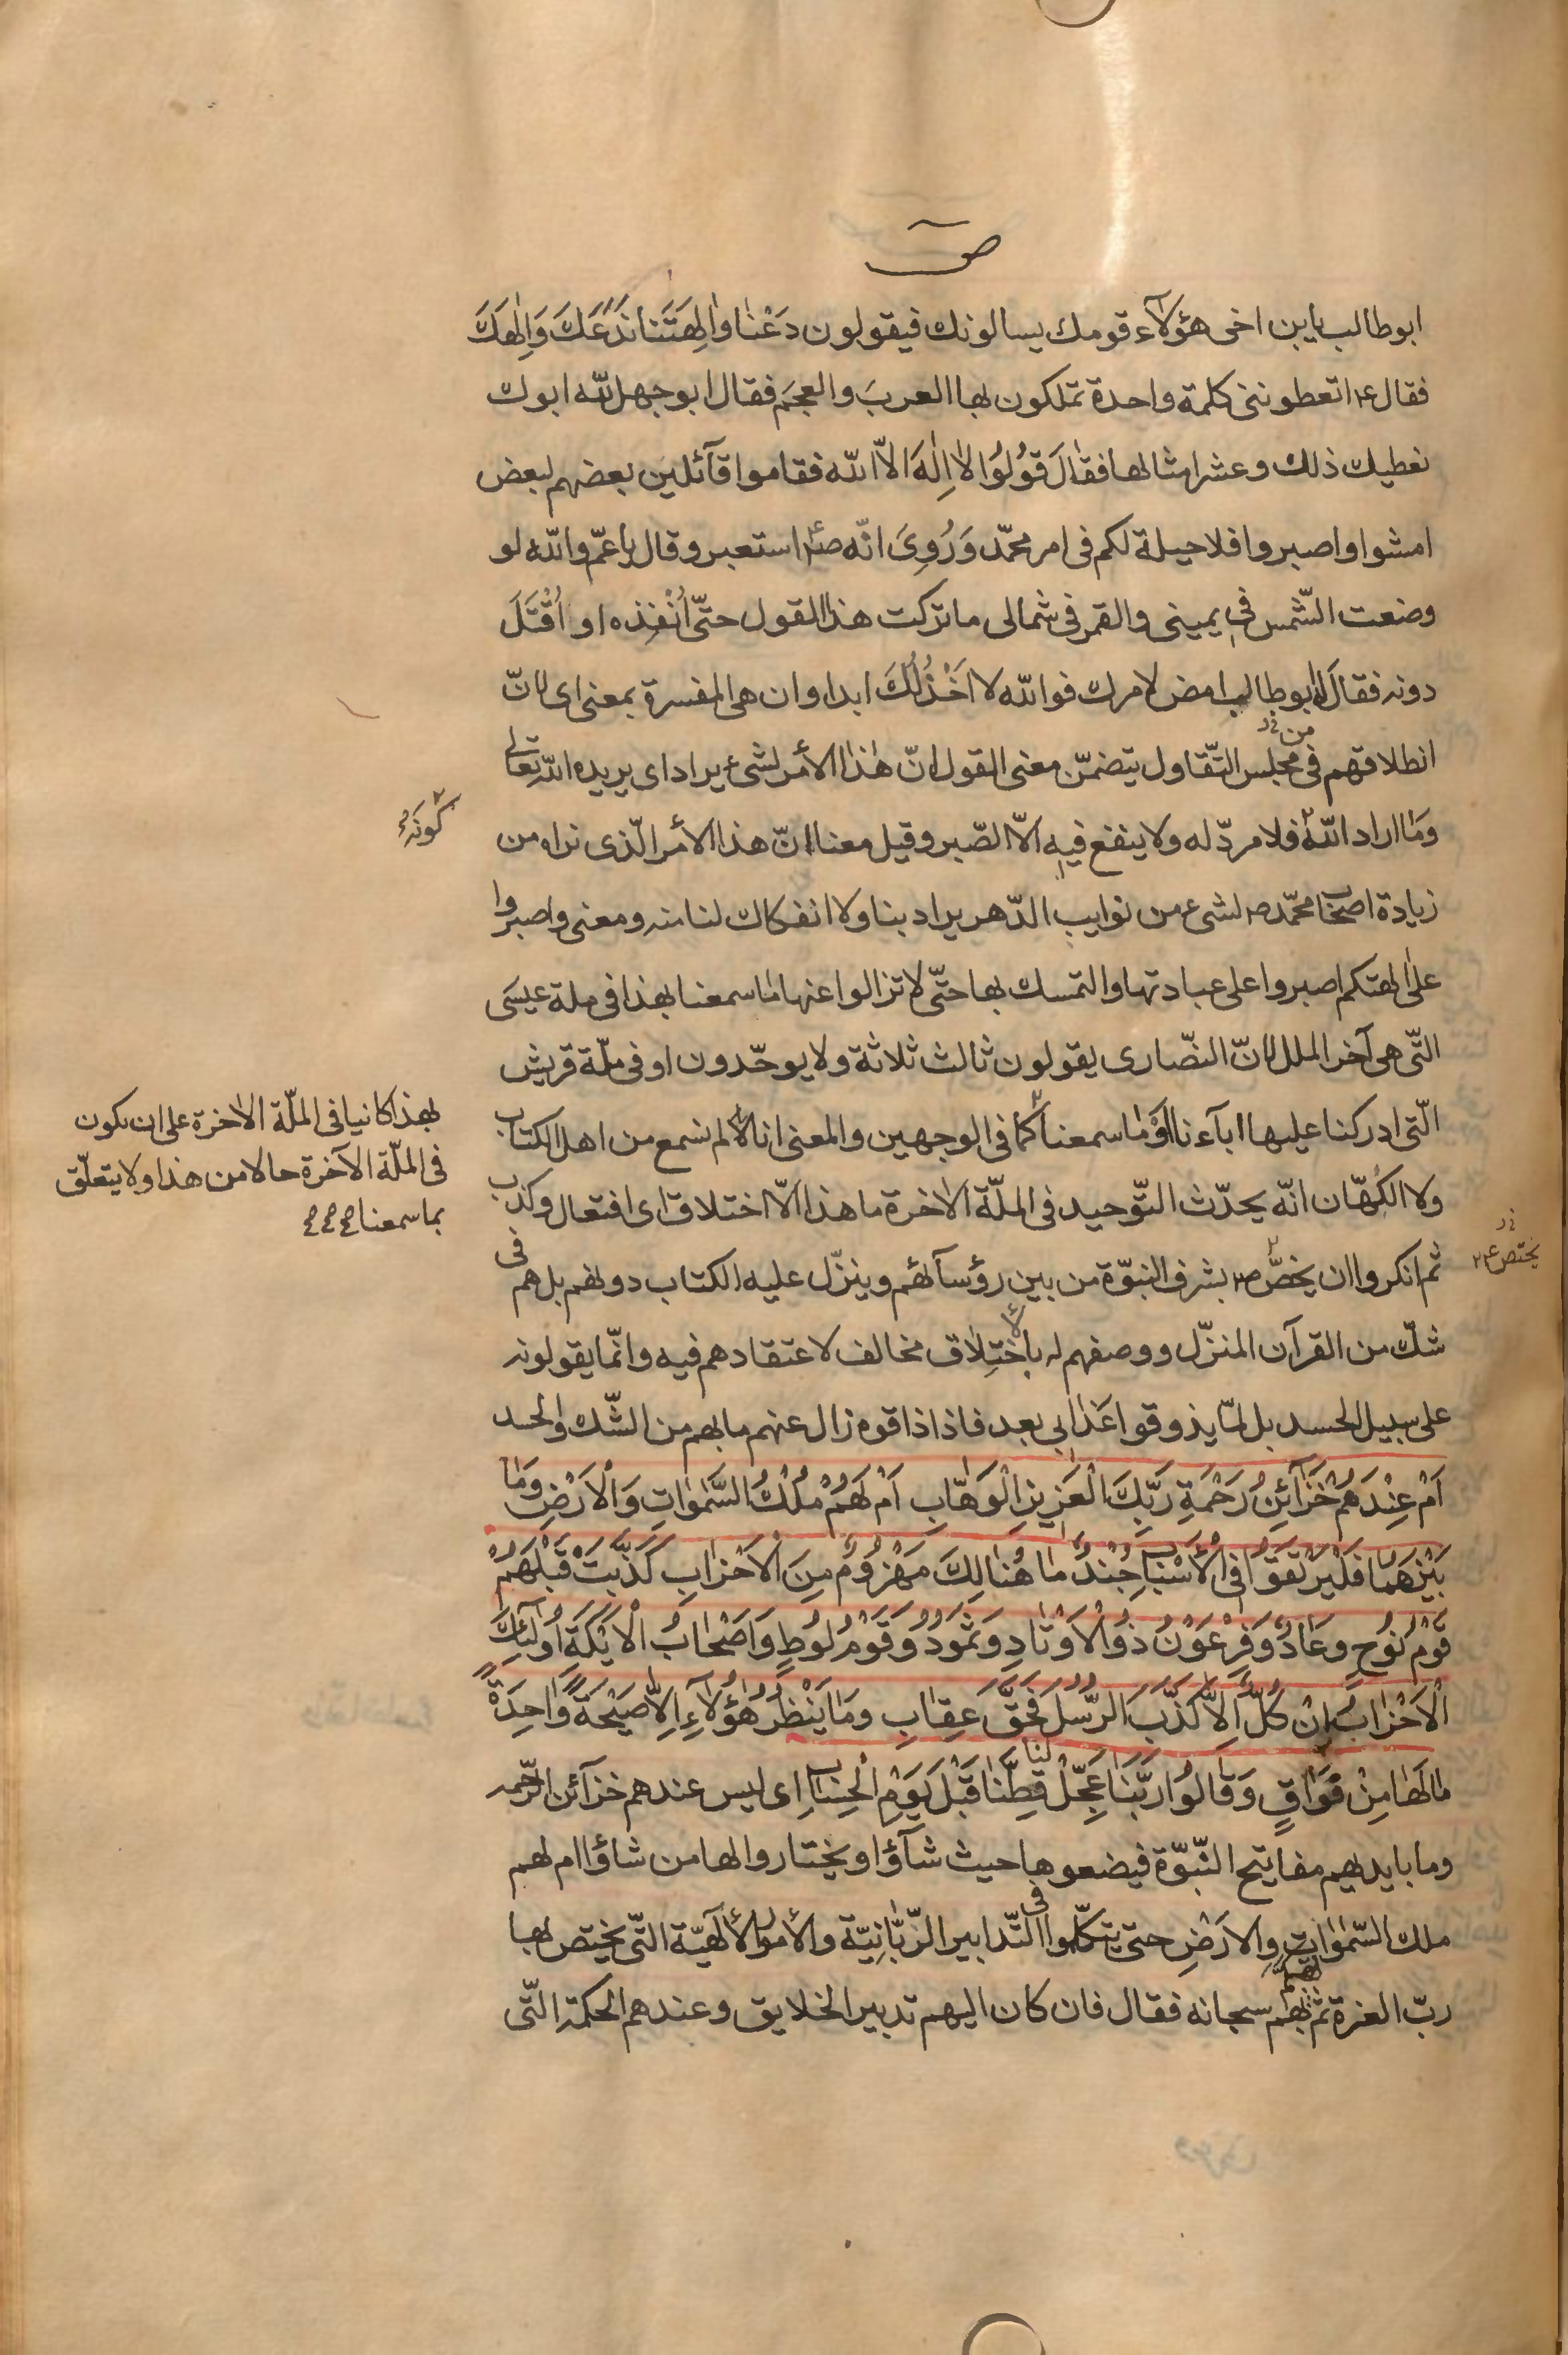 ص
ابوطالب يابن اخى هؤلآء قومك يسالونك فيقولون دَعْنا وَالِهَتَنا نَدَعكَ وَاِلٰهَكَ
فقال ع اتعطوننى كلمة واحدة تملكون بها العربَ والعجَم فقال ابوجهل لله ابوك
نعطيك ذلك وعشر امثالها فقٰالَ قوُلوُا لاٰاِلٰهَ الاّ الله فقاموا قآئلين بعضهم لبعض
امشوا واصبروا فلا حيلة لكم فى امر محمّد وَرُوِىَ انّه ص استعبر وقال ياعمّ والله لو
وضعت الشّمس فى يمينى والقمر فى شمالى ماتركت هذا القول حتّى اُنْفِذه او اُقْتَلَ
دونه فقال له ابوطالب امض لامرك فوالله لا اَخْذُلُكَ ابدا وان هى المفسرة بمعنى اى لانّ
انطلاقهم فى مجلس التّقاول يتضمّن معنى القول انّ هٰذا الأمر لشىء يراد اى يريده الله تعالى
من خ ر
ومٰا اراد الله فلا مردّ له ولا ينفع فيه الاّ الصّبر وقيل معناه انّ هذا الأمر الّذى نراه من
كونَه
زيادة اصحاب محمّد ص لشىء من نوايب الدّهر يراد بنا ولا انفكاك لنا منه ومعنى واصبروا
على الهتكم اصبروا على عبادتها والتمسك بها حتّى لاتزالوا عنها مٰا سمعنا بهذا فى ملة عيسَى
التّى هى آخر الملل لانّ النّصارى يقولون ثالث ثلاثة ولا يوحّدون او فى ملّة قريش
الّتى ادركنا عليها اٰبآءنا اوَ مٰا سمعنا كما فى الوجهين والمعنى انا لم نسمع من اهل الكتاب
ولا الكُهّان انّه يحدّث التّوحيد فى الملّة الاٰخرة ما هذا الاّ اختلاق اى افتعال وكذب
ثم انكروا ان يخصّ ص بشرف النبوّة من بين رؤسآئهم وينزّل عليه الكتاب دونهم بل هم فى
شكّ من القرآن المنزّل ووصفهم له بالاختِلاٰق مخالف لاعتقادهم فيه وانّما يقولونه
على سبيل الحسد بل لمّا يذوقوا عَذابى بعد فاذا ذاقوه زال عنهم مابهم من الشّك والحسد
اَمْ عِنْدَهُمْ خَزآئِنُ رَحْمَةِ رَبِّكَ الْعَزيزِ الْوَهّابِ اَمْ لَهُمْ مُلْكُ السَّمٰوٰاتِ وَالْاَرْضِ وَمٰا
بَيْنَهُمٰا فَلْيَرْتَقوُا فِى الْاَسْبابِ جُنْدٌ مٰا هُنٰالِكَ مَهْزوُمٌ مِنَ الْاَحْزابِ كَذَّبَتْ قَبْلَهُمْ
قَوْمُ نوُحٍ وعٰادٌ وَفِرْعَوْنُ ذوُالْاَوْتٰادِ وَثَموُدُ وَقَوْمُ لوُطٍ وَاَصْحٰابُ الْاَيْكَةِ اوُلٰئِكَ
الْاَحْزٰابُ اِنْ كُلٌّ اِلاّٰ كَذَّبَ الرُّسُلَ فَحَقَّ عِقٰابِ ومَا يَنْظُرُ هٰؤُلآءِ اِلاّٰ صَيْحَةً وٰاحِدَةً
مٰا لَهٰا مِنْ فَوٰاقٍ وَقٰالوُا رَبَّنٰا عَجِّلْ لنا قِطَّنٰا قَبْلَ يَوْمِ الْحِسٰابِ اى ليس عندهم خزآئن الرّحمه
وما بايديهم مفاتيح النّبوّة فيضعوها حيث شآؤا ويختاروا لها من شاؤا ام لهم
ملك السّمٰوٰاتِ والاَرْضِ حتى يتكلّموا فى التّدابير الرّبّٰانِيّة والأمور الالٰهيّة التّى يختص بها
ربّ العزة ثم تهكّم بهم سبحانه فقال فان كان اليهم تدبير الخلايق وعندهم الحكمة التّى
بهذا كانيا فى الملّة الاٰخرة على ان يكون
فى الملّة الآخرة حالا من هذا ولا يتعلّق
بما سمعنا
خ ر
يختص